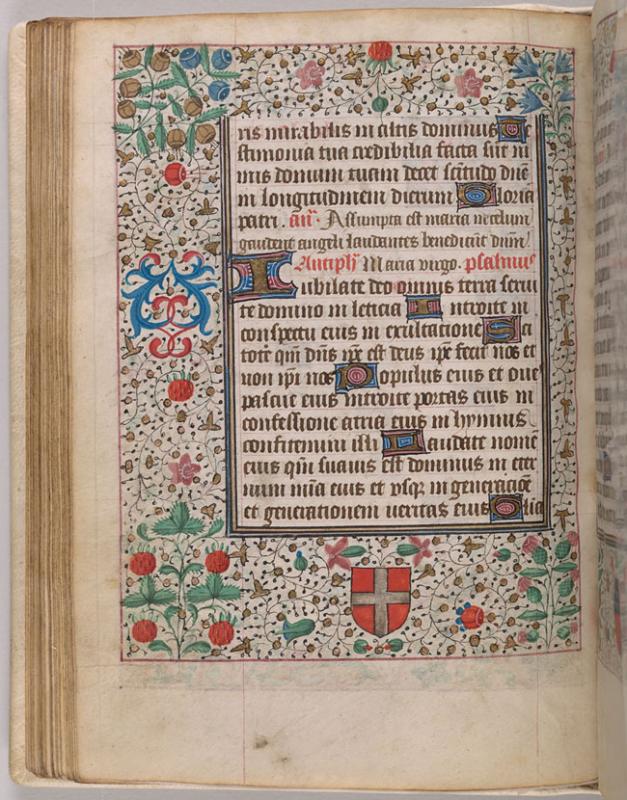 ris mirabilis in altis dominus Te
stimonia tua credibilia facta sūt ni
mis domum tuam decet scītudo dn̄e
in longitudinem dierum Gloria
patri. añ. Assumpta est maria in celum
gaudent angeli laudantes benedicūt dnm̄
Antiph̄ Maria virgo. psalmus
Iubilate deo omnis terra servi
te domino in leticia Introite in
conspectu eius in exultatione Sci
tote qm̄ dn̄s ip̄e est deus ip̄e fecit nos et
non ip̄i nos Populus eius et oves
pascue eius introite portas eius in
confessione atria eius in hymnis
confitemini illi Laudate nomē
eius qm̄ suavis est dominus in eter
num mīa eius et vsqz in generacioē
et generationem ueritas eius Glia